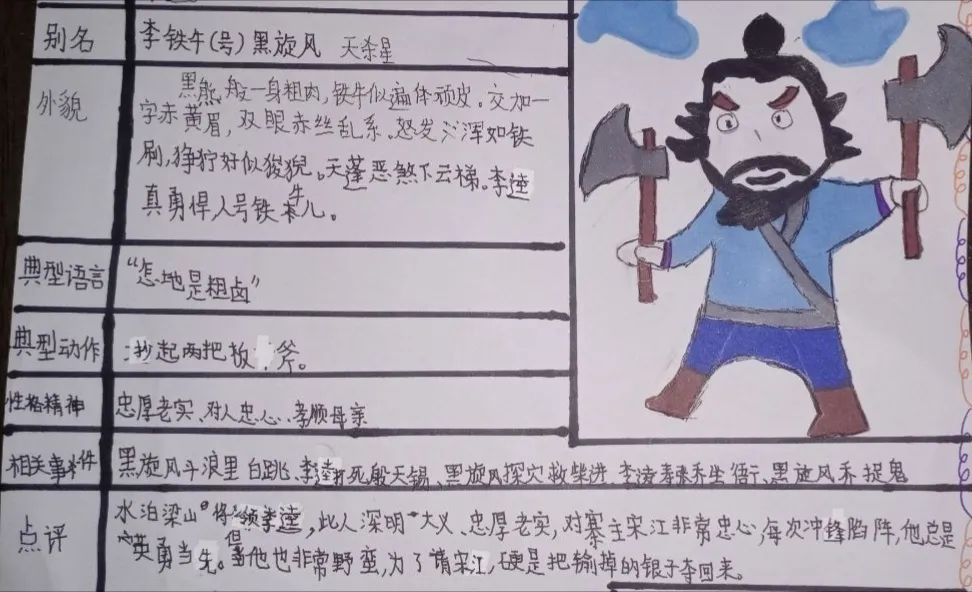 别名 李铁牛(号)黑旋风 天杀星
外貌 黑熊般一身粗肉,铁牛似遍体顽皮。交加一
字赤黄眉,双眼赤丝乱系。怒发浑如铁
刷,狰狞好似狻猊。天蓬恶煞下云梯。李逵
真勇悍人号铁牛儿。
典型语言 “怎地是粗卤”
典型动作 抄起两把板斧。
性格精神 忠厚老实、对人忠心、孝顺母亲
相关事件 黑旋风斗浪里白跳、李逵打死殷天锡、黑旋风探穴救柴进、李逵寿张乔坐衙、黑旋风乔捉鬼
点评 水泊梁山“将”领李逵,此人深明大义、忠厚老实,对寨主宋江非常忠心,每次冲锋陷阵,他总是
英勇当先。但他也非常野蛮,为了请宋江,硬是把输掉的银子夺回来。